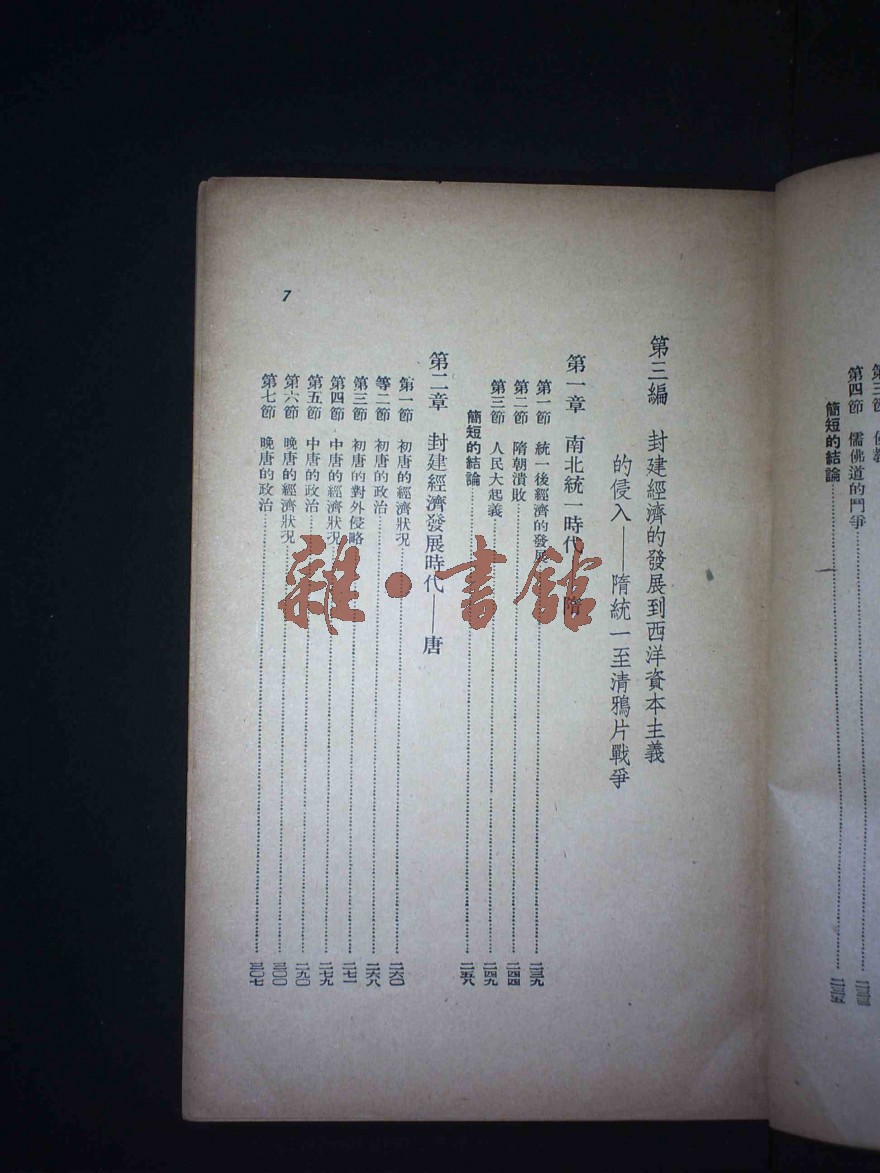 第三節
第四節 儒佛道的鬥爭
簡短的結論
第三編 封建經濟的發展到西洋資本主義
的侵入——隋統一至清鴉片戰爭
第一章 南北統一時代——隋
第一節 統一後經濟的發展 二三九
第二節 隋朝潰敗 二四四
第三節 人民大起義 二四九
簡短的結論 二五八
第二章 封建經濟發展時代——唐
第一節 初唐的經濟狀況 二六〇
等二節 初唐的政治 二六八
第三節 初唐的對外侵略 二七一
第四節 中唐的經濟狀況 二七九
第五節 中唐的政治 二九〇
第六節 晚唐的經濟狀况 三〇〇
第七節 晚唐的政治 三〇七
7
雜·書館